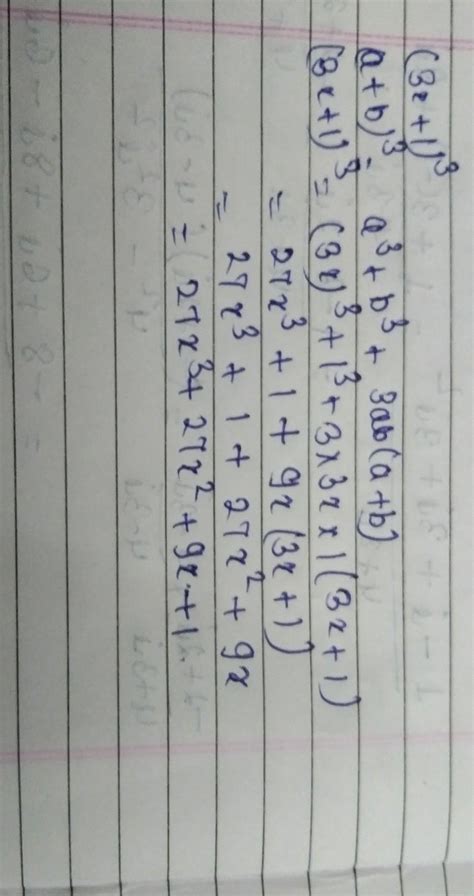 (3x+1)³
a+b)³ = a³ + b³ + 3ab(a+b)
(3x+1)³ = (3x)³ + 1³ + 3×3x×1(3x+1)
= 27x³ + 1 + 9x(3x+1)
= 27x³ + 1 + 27x² + 9x
= 27x³ + 27x² + 9x + 1